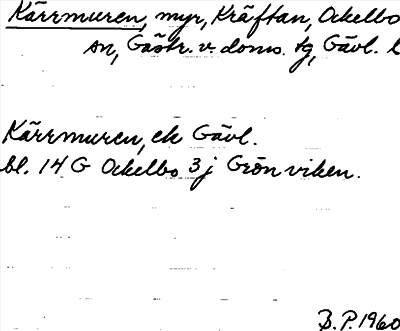 Kärrmuren, myr, Kräftan, Ockelbo
sn, Gästr. v. doms. tg, Gävl. l
Kärrmuren, ek Gävl.
bl. 14 G Ockelbo 3 j Grönviken.
B.P. 1960